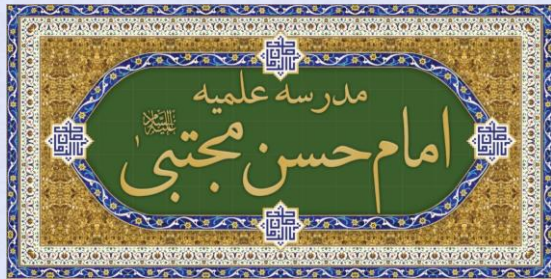 مدرسه علمیه
امام حسن مجتبی علیه‌السلام ۱